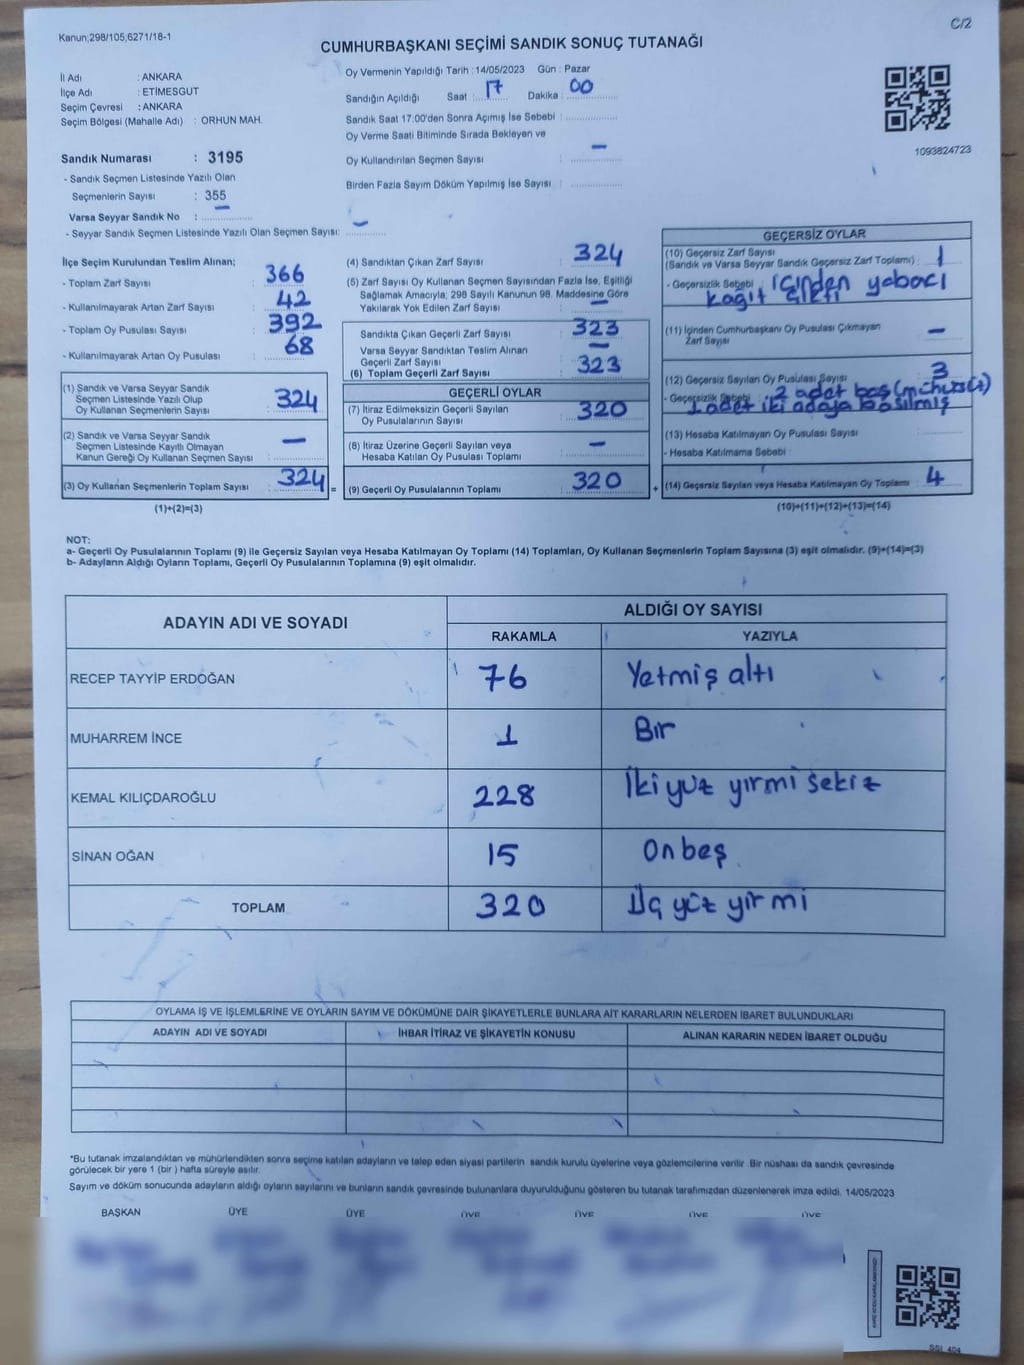 Kanun;298/105;6271/18-1
C/2
CUMHURBAŞKANI SEÇİMİ SANDIK SONUÇ TUTANAĞI
İl Adı : ANKARA
İlçe Adı : ETİMESGUT
Seçim Çevresi : ANKARA
Seçim Bölgesi (Mahalle Adı) : ORHUN MAH.
Sandık Numarası : 3195
- Sandık Seçmen Listesinde Yazılı Olan
Seçmenlerin Sayısı : 355
Varsa Seyyar Sandık No : –
- Seyyar Sandık Seçmen Listesinde Yazılı Olan Seçmen Sayısı: –
Oy Vermenin Yapıldığı Tarih : 14/05/2023 Gün : Pazar
Sandığın Açıldığı Saat : 17 Dakika : 00
Sandık Saat 17:00'den Sonra Açımış İse Sebebi :
Oy Verme Saati Bitiminde Sırada Bekleyen ve
Oy Kullandırılan Seçmen Sayısı : –
Birden Fazla Sayım Döküm Yapılmış İse Sayısı :
1093824723
İlçe Seçim Kurulundan Teslim Alınan;
- Toplam Zarf Sayısı : 366
- Kullanılmayarak Artan Zarf Sayısı : 42
- Toplam Oy Pusulası Sayısı : 392
- Kullanılmayarak Artan Oy Pusulası : 68
(1) Sandık ve Varsa Seyyar Sandık
Seçmen Listesinde Yazılı Olup
Oy Kullanan Seçmenlerin Sayısı : 324
(2) Sandık ve Varsa Seyyar Sandık
Seçmen Listesinde Kayıtlı Olmayan
Kanun Gereği Oy Kullanan Seçmen Sayısı : –
(3) Oy Kullanan Seçmenlerin Toplam Sayısı : 324 =
(1)+(2)=(3)
(4) Sandıktan Çıkan Zarf Sayısı : 324
(5) Zarf Sayısı Oy Kullanan Seçmen Sayısından Fazla İse, Eşitliği
Sağlamak Amacıyla; 298 Sayılı Kanunun 98. Maddesine Göre
Yakılarak Yok Edilen Zarf Sayısı : –
Sandıkta Çıkan Geçerli Zarf Sayısı : 323
Varsa Seyyar Sandıktan Teslim Alınan
Geçerli Zarf Sayısı : –
(6) Toplam Geçerli Zarf Sayısı : 323
GEÇERLİ OYLAR
(7) İtiraz Edilmeksizin Geçerli Sayılan
Oy Pusulalarının Sayısı : 320
(8) İtiraz Üzerine Geçerli Sayılan veya
Hesaba Katılan Oy Pusulası Toplamı : –
(9) Geçerli Oy Pusulalarının Toplamı : 320 +
GEÇERSİZ OYLAR
(10) Geçersiz Zarf Sayısı
(Sandık ve Varsa Seyyar Sandık Geçersiz Zarf Toplamı) : 1
- Geçersizlik Sebebi : içinden yabacı
kağıt çıktı
(11) İçinden Cumhurbaşkanı Oy Pusulası Çıkmayan
Zarf Sayısı : –
(12) Geçersiz Sayılan Oy Pusulası Sayısı : 3
- Geçersizlik Sebebi : 2 adet boş (mühürsüz)
1 adet iki adaya basılmış
(13) Hesaba Katılmayan Oy Pusulası Sayısı :
- Hesaba Katılmama Sebebi :
(14) Geçersiz Sayılan veya Hesaba Katılmayan Oy Toplamı : 4
(10)+(11)+(12)+(13)=(14)
NOT:
a- Geçerli Oy Pusulalarının Toplamı (9) ile Geçersiz Sayılan veya Hesaba Katılmayan Oy Toplamı (14) Toplamları, Oy Kullanan Seçmenlerin Toplam Sayısına (3) eşit olmalıdır. (9)+(14)=(3)
b- Adayların Aldığı Oyların Toplamı, Geçerli Oy Pusulalarının Toplamına (9) eşit olmalıdır.
ADAYIN ADI VE SOYADI
ALDIĞI OY SAYISI
RAKAMLA YAZIYLA
RECEP TAYYİP ERDOĞAN 76 Yetmiş altı
MUHARREM İNCE 1 Bir
KEMAL KILIÇDAROĞLU 228 İki yüz yirmi sekiz
SİNAN OĞAN 15 On beş
TOPLAM 320 Üç yüz yirmi
OYLAMA İŞ VE İŞLEMLERİNE VE OYLARIN SAYIM VE DÖKÜMÜNE DAİR ŞİKAYETLERLE BUNLARA AİT KARARLARIN NELERDEN İBARET BULUNDUKLARI
ADAYIN ADI VE SOYADI İHBAR İTİRAZ VE ŞİKAYETİN KONUSU ALINAN KARARIN NEDEN İBARET OLDUĞU
*Bu tutanak imzalandıktan ve mühürlendikten sonra seçime katılan adayların ve talep eden siyasi partilerin sandık kurulu üyelerine veya gözlemcilerine verilir. Bir nüshası da sandık çevresinde
görülecek bir yere 1 (bir ) hafta süreyle asılır.
Sayım ve döküm sonucunda adayların aldığı oyların sayılarını ve bunların sandık çevresinde bulunanlara duyurulduğunu gösteren bu tutanak tarafımızdan düzenlenerek imza edildi. 14/05/2023
BAŞKAN ÜYE ÜYE ÜYE ÜYE ÜYE ÜYE